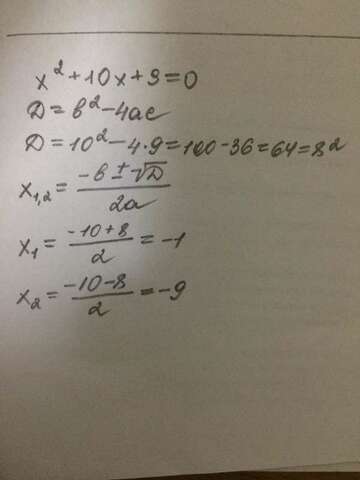 x² + 10x + 9 = 0
D = b² - 4ac
D = 10² - 4·9 = 100 - 36 = 64 = 8²
x₁,₂ = (-b ± √D) / 2a
x₁ = (-10 + 8) / 2 = -1
x₂ = (-10 - 8) / 2 = -9